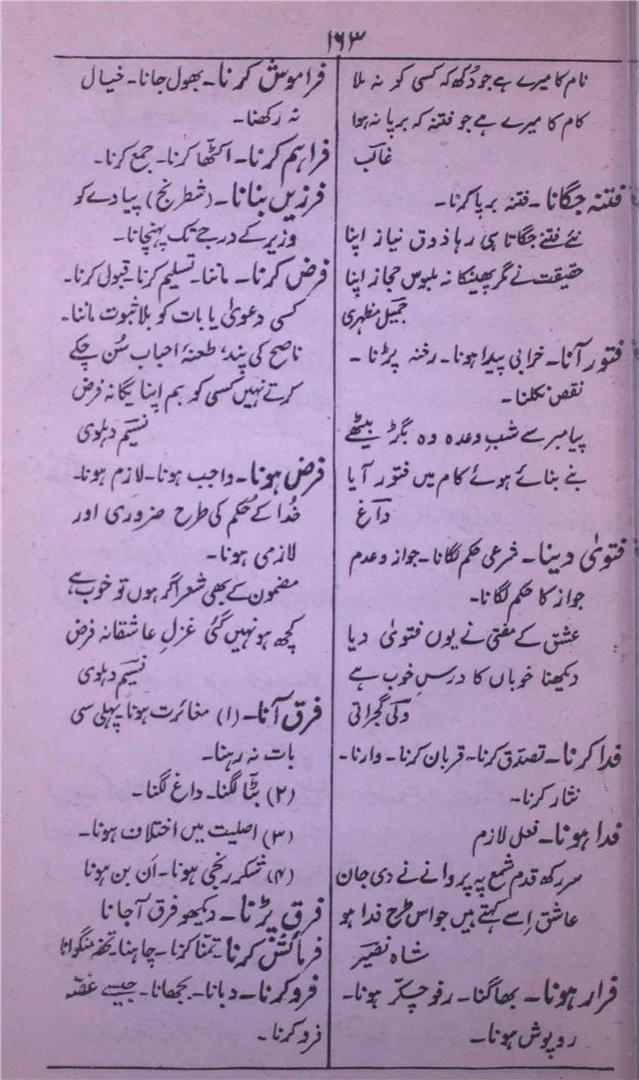 ۱۶۳
نام کا میرے ہے جو دُکھ کہ کسی کو نہ ملا
کام کا میرے ہے جو فتنہ کہ برپا نہ ہوا
غالب
فتنہ جگانا۔ فتنہ برپا کرنا۔
نئے فتنے جگاتا ہی رہا ذوق نیاز اپنا
حقیقت نے مگر پھینکا نہ ملبوس مجاز اپنا
جمیل مظہری
فتور آنا۔ خرابی پیدا ہونا۔ رخنہ پڑنا۔
نقص نکلنا۔
پیامبر سے شبِ وعدہ وہ بگڑ بیٹھے
بنے بنائے ہوئے کام میں فتور آیا
داغ
فتویٰ دینا۔ شرعی حکم لگانا۔ جواز و عدم
جواز کا حکم لگانا۔
عشق کے مفتی نے یوں فتویٰ دیا
دیکھنا خوباں کا درسِ خوب ہے
ولی گجراتی
فدا کرنا۔ تصدّق کرنا۔ قربان کرنا۔ وارنا۔
نثار کرنا۔
فدا ہونا۔ فعل لازم
سر رکھ قدم شمع پہ پروانے نے دی جان
عاشق اِسے کہتے ہیں جو اس طرح فدا ہو
شاہ نصیر
فرار ہونا۔ بھاگنا۔ رفو چکّر ہونا۔
روپوش ہونا۔
فراموش کرنا۔ بھول جانا۔ خیال
نہ رکھنا۔
فراہم کرنا۔ اکٹھا کرنا۔ جمع کرنا۔
فرزیں بنانا۔ (شطرنج) پیادے کو
وزیر کے درجے تک پہنچانا۔
فرض کرنا۔ ماننا۔ تسلیم کرنا۔ قبول کرنا۔
کسی دعویٰ یا بات کو بلا ثبوت ماننا۔
ناصح کی پند، طعنۂ احباب سُن چکے
کرتے نہیں کسی کو ہم اپنا یگانہ فرض
نسیم دہلوی
فرض ہونا۔ واجب ہونا۔ لازم ہونا۔
خُدا کے حُکم کی طرح ضروری اور
لازمی ہونا۔
مضمون کے بھی شعر اگر ہوں تو خوب ہے
کچھ ہو نہیں گئی غزلِ عاشقانہ فرض
نسیم دہلوی
فرق آنا۔ (۱) مغائرت ہونا۔ پہلی سی
بات نہ رہنا۔
(۲) بٹّا لگنا۔ داغ لگنا۔
(۳) اصلیت میں اختلاف ہونا۔
(۴) شکر رنجی ہونا۔ اَن بن ہونا
فرق پڑنا۔ دیکھو فرق آ جانا
فرمائش کرنا۔ تمنّا کرنا۔ چاہنا۔ تحفہ منگوانا
فرو کرنا۔ دبانا۔ بجھانا۔ جیسے غصّہ
فرو کرنا۔